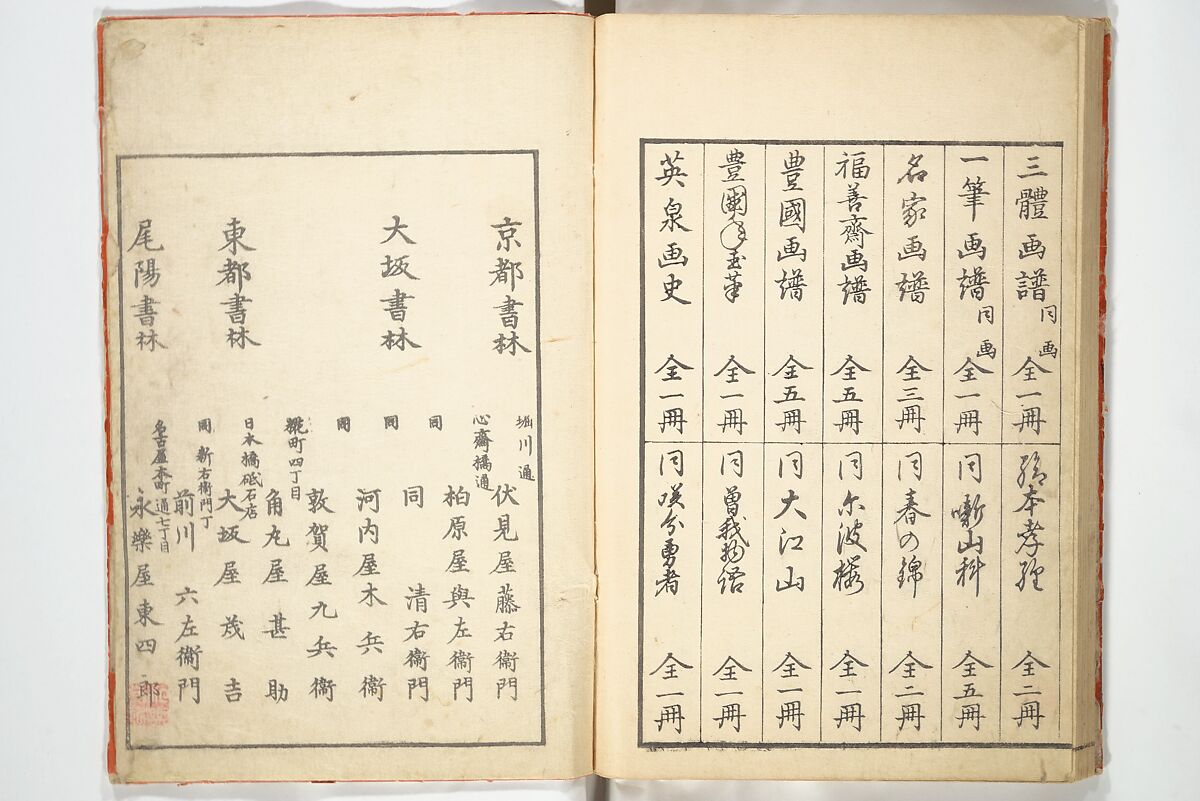 三體画譜 同画 全一冊
一筆画譜 同画 全一冊
名家画譜 全三冊
福善齋画譜 全五冊
豊國画譜 全五冊
豊國年玉筆 全一冊
英泉画史 全一冊
繪本孝經 全二冊
同 噺山科 全五冊
同 春の錦 全二冊
同 尓波桜 全一冊
同 大江山 全一冊
同 曽我物語 全一冊
同 咲分勇者 全一冊
京都書林 堀川通 伏見屋藤右衞門
大坂書林 心齋橋通 柏原屋與左衞門
同 同 清右衞門
同 河内屋木兵衞
同 敦賀屋九兵衞
東都書林 糀町四丁目 角丸屋甚助
日本橋砥石店 大坂屋茂吉
同 新右衞門丁 前川六左衞門
尾陽書林 名古屋本町通七丁目 永樂屋東四郎